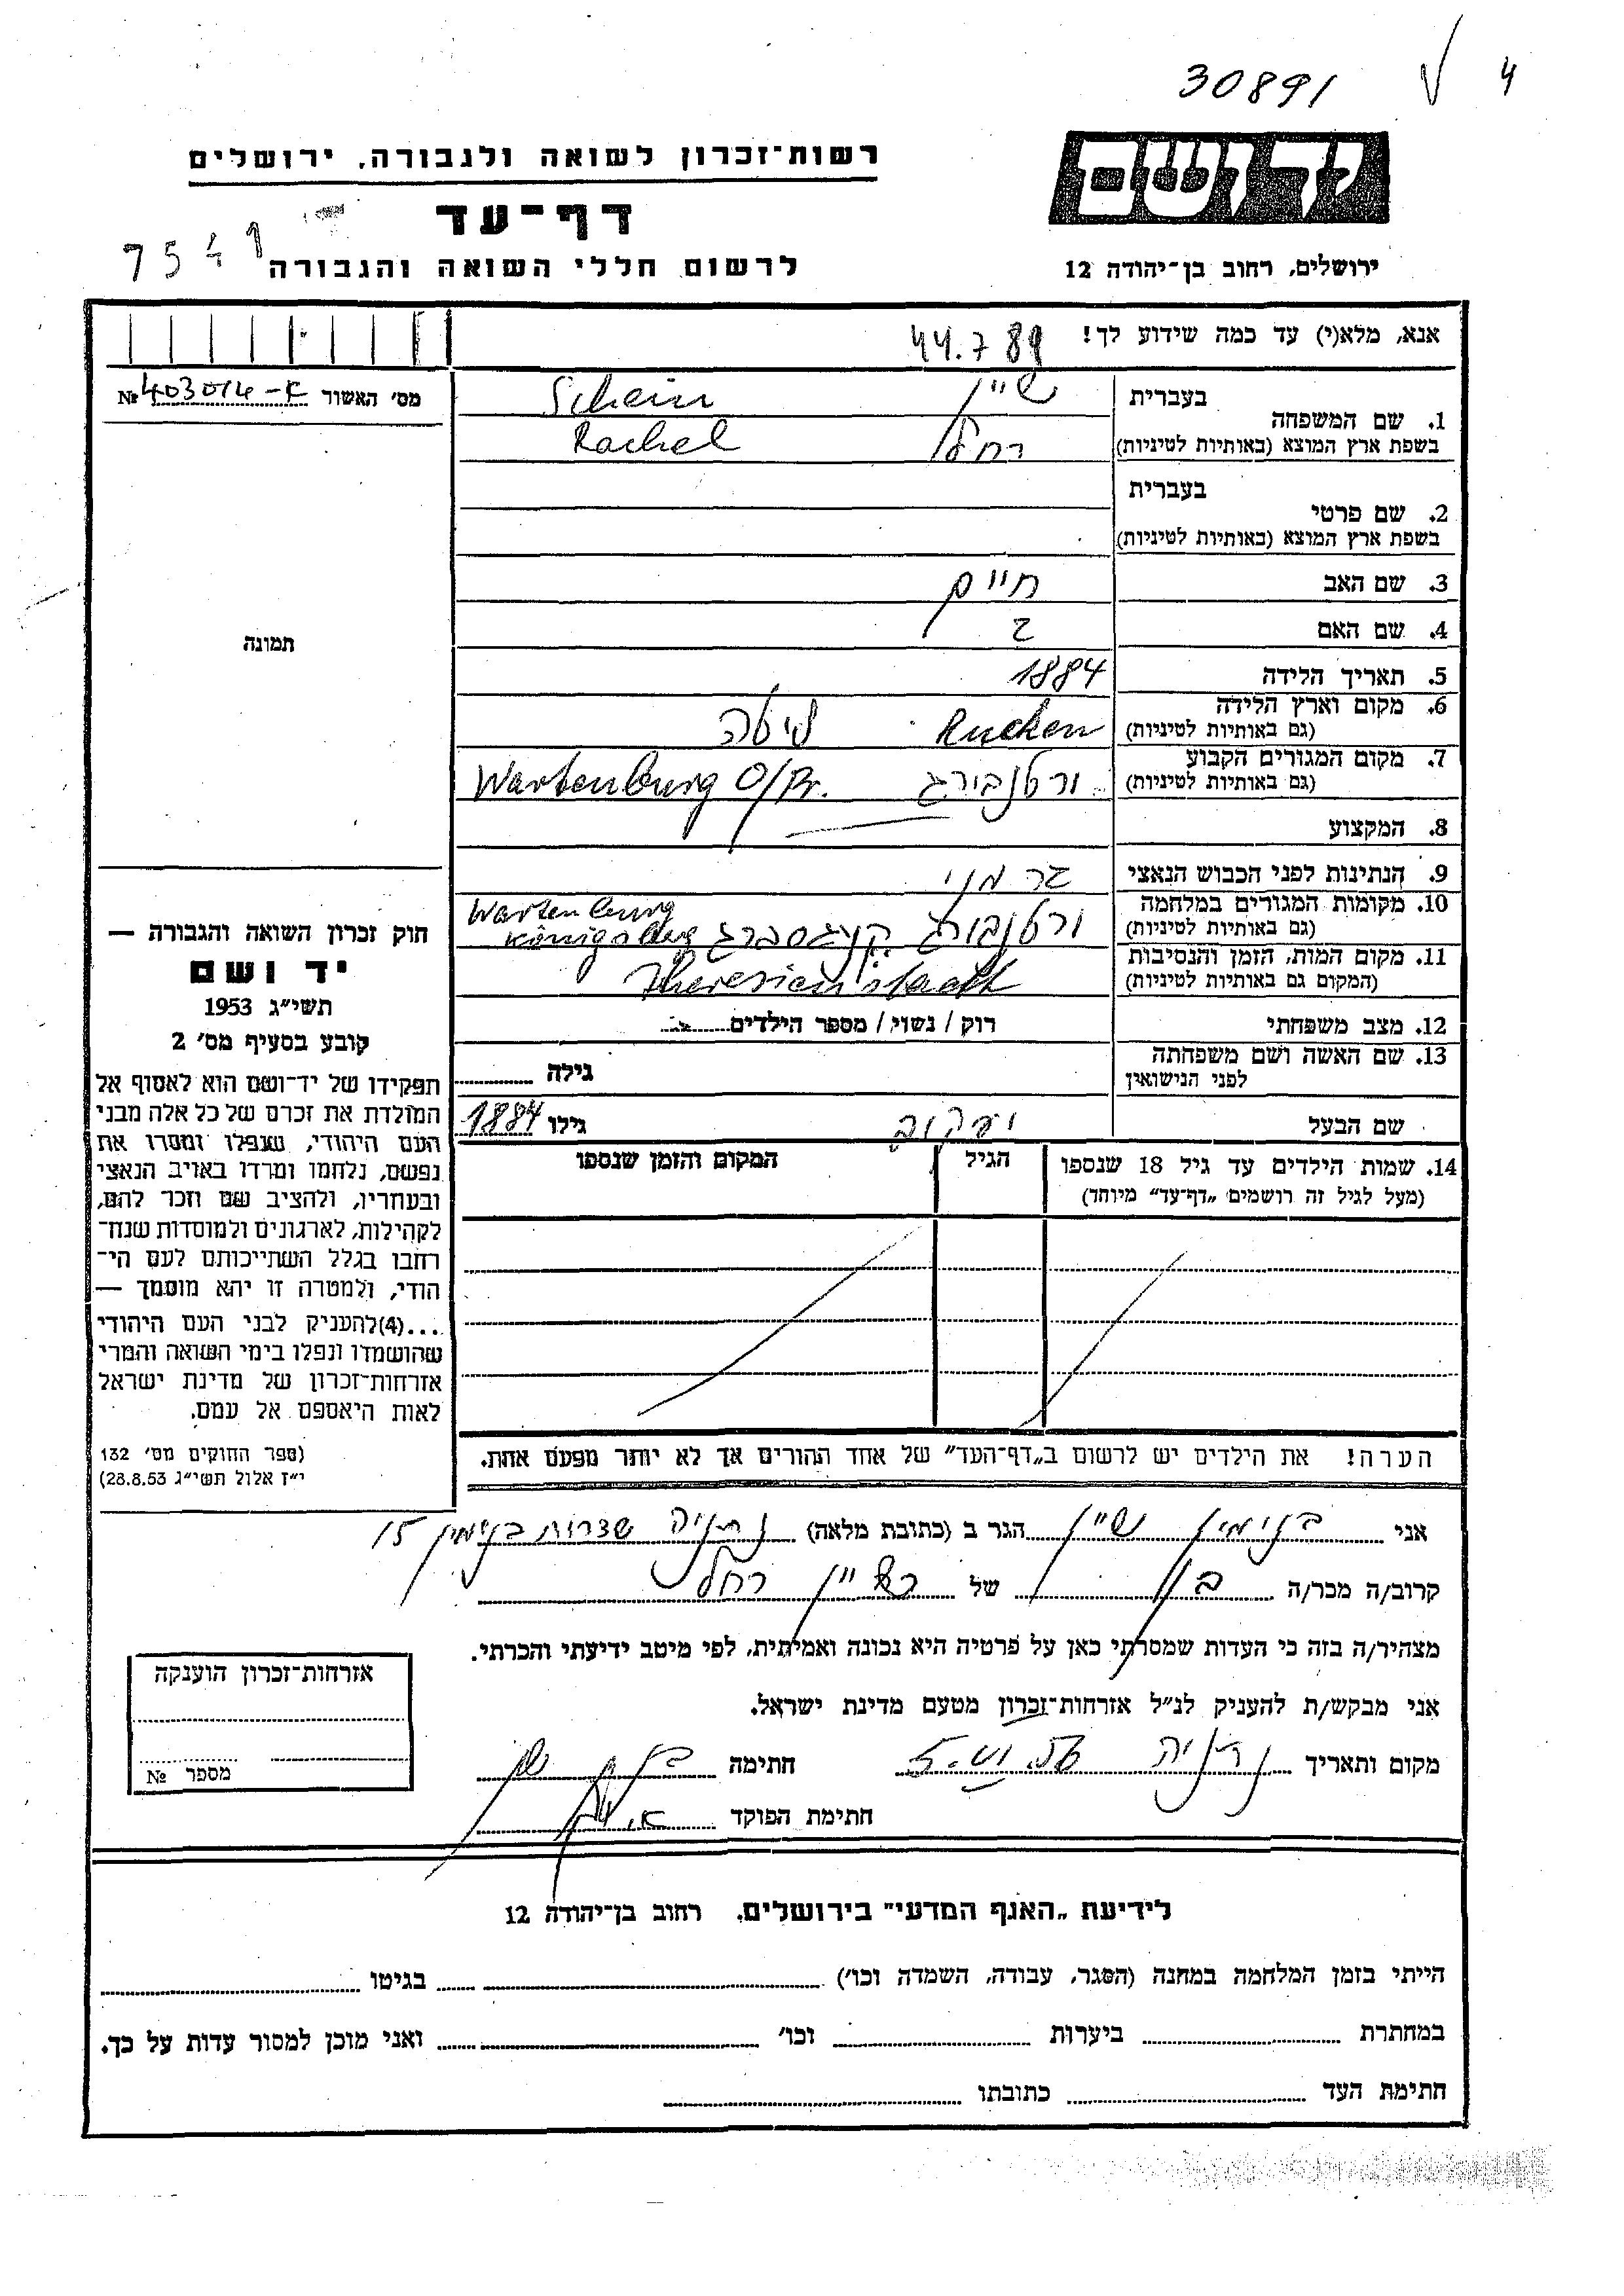 30891 4
ידושם
רשות־זכרון לשואה ולגבורה, ירושלים
דף־עד
לרשום חללי השואה והגבורה
ירושלים, רחוב בן־יהודה 12
אנא, מלא(י) עד כמה שידוע לך!
44.7 89
מס׳ האשור № 403014-א
בעברית
1. שם המשפחה
בשפת ארץ המוצא (באותיות לטיניות)
שיין Schein
רחל Rachel
בעברית
2. שם פרטי
בשפת ארץ המוצא (באותיות לטיניות)
3. שם האב חיים
4. שם האם ?
5. תאריך הלידה 1884
6. מקום וארץ הלידה
(גם באותיות לטיניות)
Rucken ליטה
7. מקום המגורים הקבוע
(גם באותיות לטיניות)
ורטנבורג Wartenburg O/Pr.
8. המקצוע
9. הנתינות לפני הכבוש הנאצי גרמני
10. מקומות המגורים במלחמה
(גם באותיות לטיניות)
Wartenburg
ורטנבורג קניגסברג Königsberg
11. מקום המות, הזמן והנסיבות
(המקום גם באותיות לטיניות)
Theresienstadt
12. מצב משפחתי רוק / נשוי / מספר הילדים
13. שם האשה ושם משפחתה
לפני הנישואין
גילה
שם הבעל יעקוב גילו 1884
14. שמות הילדים עד גיל 18 שנספו
(מעל לגיל זה רושמים „דף־עד” מיוחד)
הגיל
המקום והזמן שנספו
הערה! את הילדים יש לרשום ב„דף־העד” של אחד ההורים אך לא יותר מפעם אחת.
תמונה
חוק זכרון השואה והגבורה —
יד ושם
תשי״ג 1953
קובע בסעיף מס׳ 2
תפקידו של יד־ושם הוא לאסוף אל
המולדת את זכרם של כל אלה מבני
העם היהודי, שנפלו ומסרו את
נפשם, נלחמו ומרדו באויב הנאצי
ובעוזריו, ולהציב שם וזכר להם,
לקהילות, לארגונים ולמוסדות שנח־
רבו בגלל השתייכותם לעם הי־
הודי, ולמטרה זו יהא מוסמך —
...(4) להעניק לבני העם היהודי
שהושמדו ונפלו בימי השואה והמרי
אזרחות־זכרון של מדינת ישראל
לאות היאספם אל עמם.
(ספר החוקים מס׳ 132
י״ז אלול תשי״ג 28.8.53)
אני בנימין שיין הגר ב (כתובת מלאה) נתניה שדרות בנימין 15
קרוב/ה מכר/ה בן של שיין רחל
מצהיר/ה בזה כי העדות שמסרתי כאן על פרטיה היא נכונה ואמיתית, לפי מיטב ידיעתי והכרתי.
אני מבקש/ת להעניק לנ״ל אזרחות־זכרון מטעם מדינת ישראל.
מקום ותאריך נתניה 5.VI.56 חתימה
חתימת הפוקד
אזרחות־זכרון הוענקה
מספר №
לידיעת „האגף המדעי” בירושלים, רחוב בן־יהודה 12
הייתי בזמן המלחמה במחנה (הסגר, עבודה, השמדה וכו׳) בגיטו
במחתרת ביערות וכו׳ ואני מוכן למסור עדות על כך.
חתימת העד כתובתו